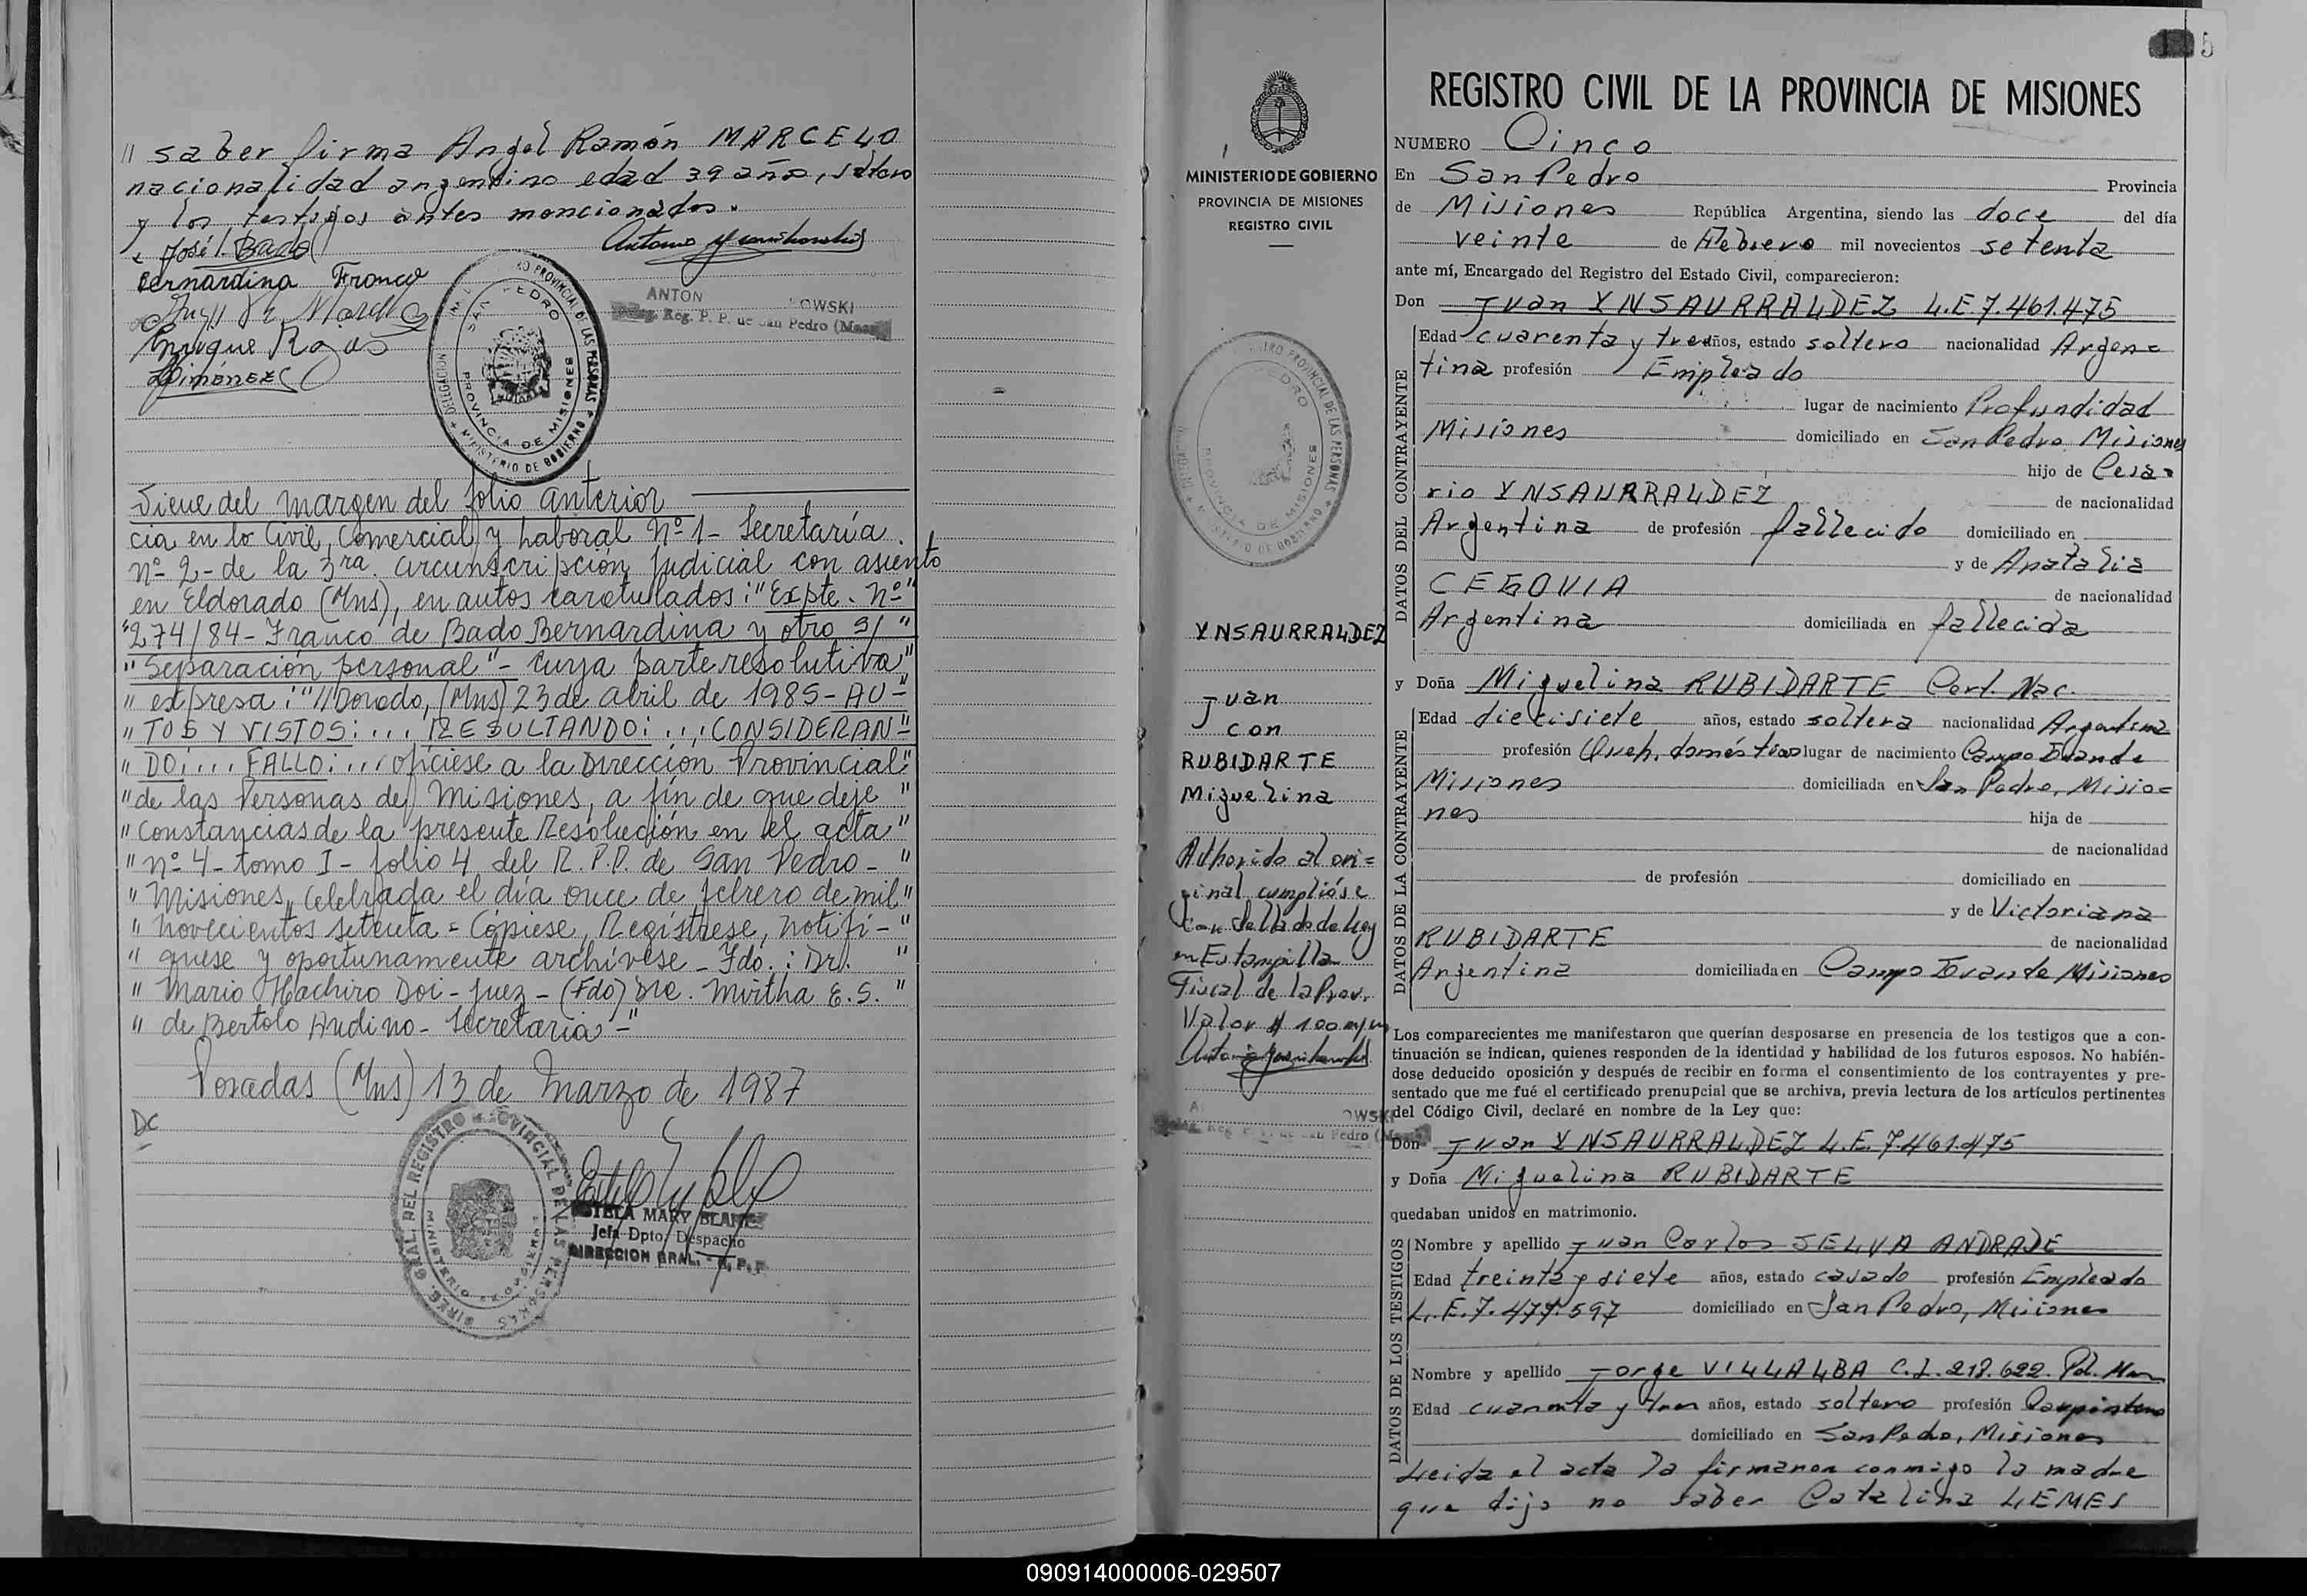 // saber firma Angel Ramón MARCELO
nacionalidad argentino edad 39 años, soltero
y los testigos antes mencionados.
José I. Bado
Bernardina Franco
Enrique Rojas
Giménez
ANTON OWSKI
Reg. P. P. de San Pedro (Mnes)
DELEGACION SAN PEDRO PROVINCIA DE MISIONES
REGISTRO PROVINCIAL DE LAS PERSONAS
MINISTERIO DE GOBIERNO
Viene del margen del folio anterior
cia en lo Civil, Comercial y Laboral Nº 1- Secretaría
nº 2- de la 3ra. circunscripción Judicial con asiento
en Eldorado (Mns), en autos caratulados: "Expte. Nº"
"274/84- Franco de Bado Bernardina y otro s/ "
"Separación personal"- cuya parte resolutiva"
" expresa: "//Dorado, (Mns) 23 de abril de 1985- AU-"
" TOS Y VISTOS:... RESULTANDO:...,CONSIDERAN-"
" DO:... FALLO:... ofíciese a la Dirección Provincial"
"de las Personas de Misiones, a fín de que deje "
"Constancias de la presente Resolución en el acta"
" nº 4- tomo I- folio 4 del R.P.P. de San Pedro- "
" Misiones, celebrada el día once de febrero de mil"
" novecientos setenta = Cópiese, Regístrese, notifí- "
" quese y oportunamente archívese- Fdo.: Dr. "
" Mario Hachiro Doi- Juez- (Fdo) Dra. Mirtha E.S. "
" de Bertolo Andino- Secretaria-"
Posadas (Mns) 13 de Marzo de 1987
DC
ESTELA MARY BLANC
Jefa Dpto. Despacho
DIRECCION GRAL. R. P. P.
DIREC. GRAL. DEL REGISTRO PROVINCIAL DE LAS PERSONAS
MINISTERIO
MINISTERIO DE GOBIERNO
PROVINCIA DE MISIONES
REGISTRO CIVIL
YNSAURRALDEZ
Juan
con
RUBIDARTE
Miguelina
Adherido al ori=
ginal cumplióse
con Sellado de Ley
en Estampilla
Fiscal de la Prov.
Valor $ 100 m/n
5
REGISTRO CIVIL DE LA PROVINCIA DE MISIONES
NUMERO Cinco
En San Pedro Provincia
de Misiones República Argentina, siendo las doce del día
veinte de Febrero mil novecientos setenta
ante mí, Encargado del Registro del Estado Civil, comparecieron:
Don Juan YNSAURRALDEZ L.E.7.461.475
DATOS DEL CONTRAYENTE
Edad cuarenta y tres años, estado soltero nacionalidad Argen=
tina profesión Empleado
lugar de nacimiento Profundidad
Misiones domiciliado en San Pedro Misiones
hijo de Cesa=
rio YNSAURRALDEZ de nacionalidad
Argentina de profesión fallecido domiciliado en
y de Anatalia
CEGOVIA de nacionalidad
Argentina domiciliada en fallecida
y Doña Miguelina RUBIDARTE Cert. Nac.
DATOS DE LA CONTRAYENTE
Edad diecisiete años, estado soltera nacionalidad Argentina
profesión Queh. domésticos lugar de nacimiento Campo Grande
Misiones domiciliada en San Pedro, Misio=
nes hija de
de nacionalidad
de profesión domiciliado en
y de Victoriana
RUBIDARTE de nacionalidad
Argentina domiciliada en Campo Grande Misiones
Los comparecientes me manifestaron que querían desposarse en presencia de los testigos que a con-
tinuación se indican, quienes responden de la identidad y habilidad de los futuros esposos. No habién-
dose deducido oposición y después de recibir en forma el consentimiento de los contrayentes y pre-
sentado que me fué el certificado prenupcial que se archiva, previa lectura de los artículos pertinentes
del Código Civil, declaré en nombre de la Ley que:
Don Juan YNSAURRALDEZ L.E. 7.461.475
y Doña Miguelina RUBIDARTE
quedaban unidos en matrimonio.
DATOS DE LOS TESTIGOS
Nombre y apellido Juan Carlos SELVA ANDRADE
Edad treinta y siete años, estado casado profesión Empleado
L.E.7.477.597 domiciliado en San Pedro, Misiones
Nombre y apellido Jorge VILLALBA C.I. 218.622. Pol. Mnes
Edad cuarenta y tres años, estado soltero profesión Carpintero
domiciliado en San Pedro, Misiones
Leida el acta la firmaron conmigo la madre
que dijo no saber Catalina LEMES
090914000006-029507